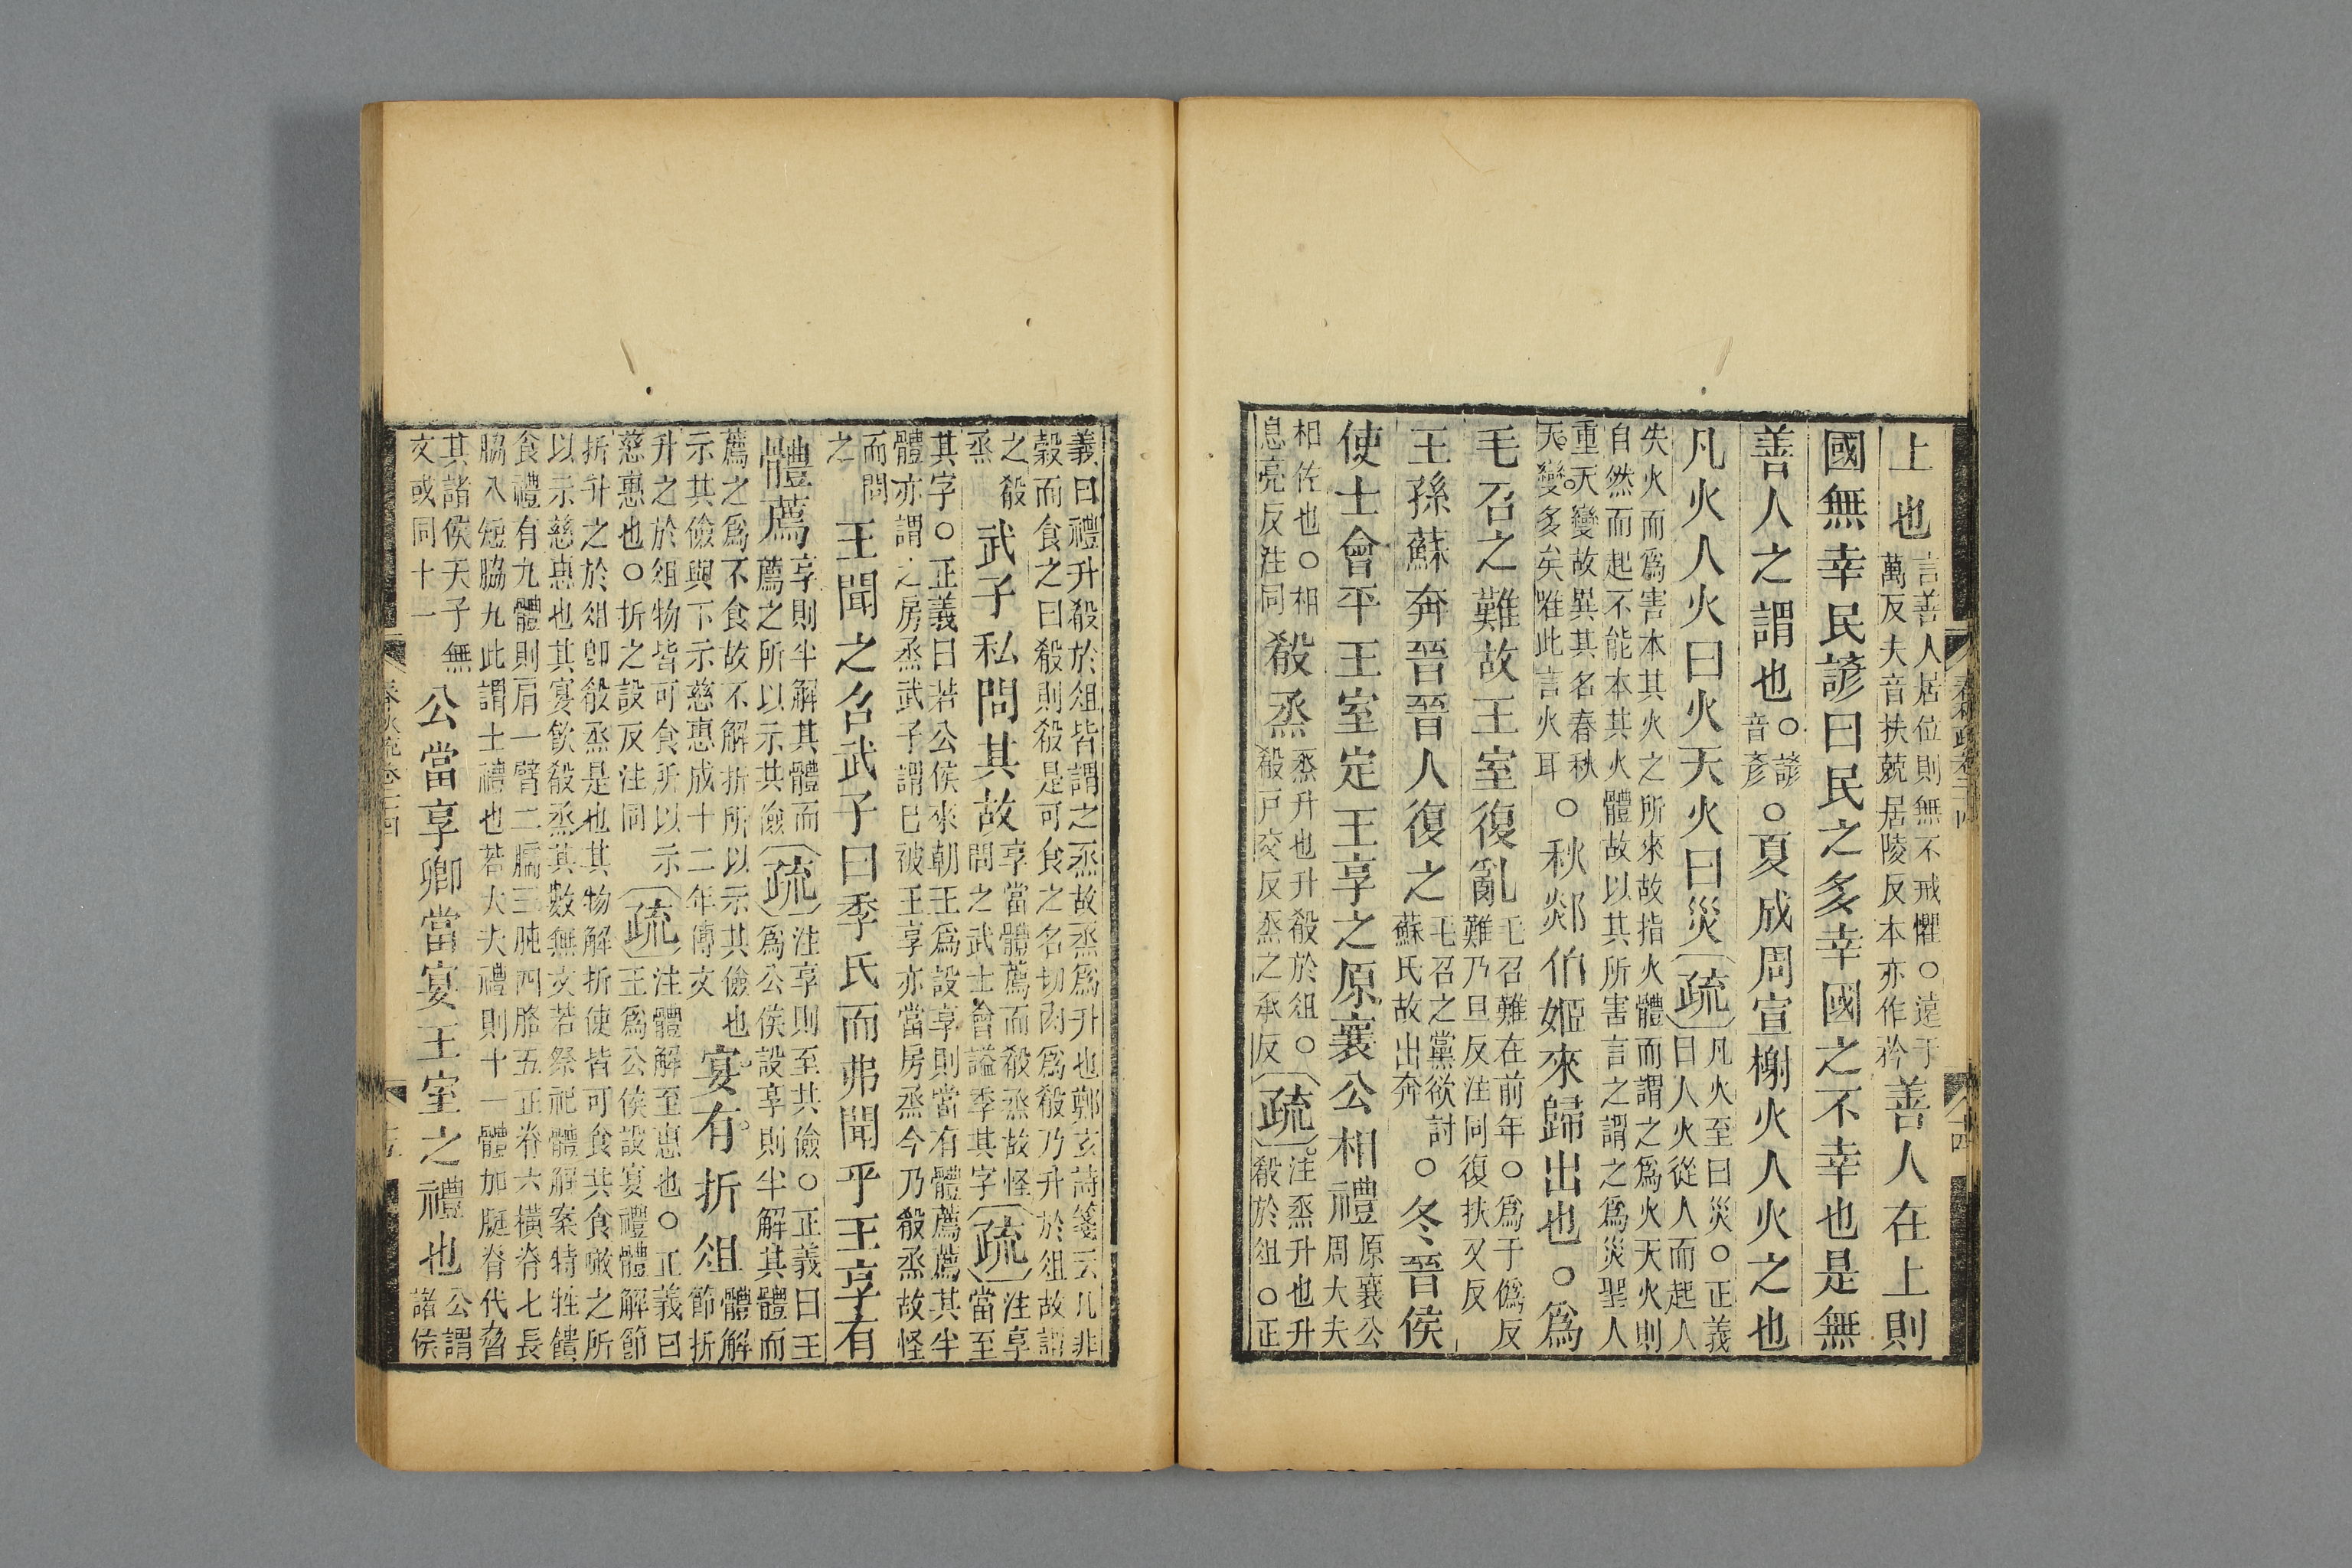 上也言善人居位則無不戒懼○遠于萬反夫音扶兢居陵反本亦作矜善人在上則
國無幸民諺曰民之多幸國之不幸也是無
善人之謂也○諺音彥○夏成周宣榭火人火之也
凡火人火曰火天火曰災〔疏〕凡火至曰災○正義曰人火從人而起人
失火而爲害本其火之所來故指火體而謂之爲火天火則
自然而起不能本其火體故以其所害言之謂之爲災聖人
重天變故異其名春秋天變多矣唯此言火耳○秋郯伯姬來歸出也○爲
毛召之難故王室復亂毛召難在前年○爲于僞反難乃旦反注同復扶又反
王孫蘇奔晉晉人復之毛召之黨欲討蘇氏故出奔○冬晉侯
使士會平王室定王享之原襄公相禮原襄公周大夫
相佐也○相息亮反注同殽烝烝升也升殽於俎○殽戸交反烝之承反〔疏〕注烝升也升殽於俎○正
春秋疏卷二十四
十四
義曰禮升殽於俎皆謂之烝故烝爲升也鄭玄詩箋云凡非
穀而食之曰殽則殽是可食之名切肉爲殽乃升於俎故謂
之殽烝武子私問其故享當體薦而殽烝故怪問之武士會謚季其字〔疏〕注享當至
其字○正義曰若公侯來朝王爲設享則當有體薦薦其半
體亦謂之房烝武子謂已被王享亦當房烝今乃殽烝故怪
而問之王聞之召武子曰季氏而弗聞乎王享有
體薦享則半解其體而薦之所以示共儉〔疏〕注享則至共儉○正義曰王爲公侯設享則半解其體而
薦之爲不食故不解折所以示其儉也示其儉與下示慈惠成十二年傳文宴有折俎體解節折
升之於俎物皆可食所以示慈惠也○折之設反注同〔疏〕注體解至惠也○正義曰王爲公侯設宴禮體解節
折升之於俎卽殽烝是也其物解折使皆可食共食噉之所
以示慈惠也其宴飲殽烝其數無文若祭祀體解案特牲饋
食禮有九體則肩一臂二臑三肫四胳五正脊六橫脊七長
脇八短脇九此謂士禮也若大夫禮則十一體加脡脊代脅
其諸侯天子無文或同十一公當享卿當宴王室之禮也公謂諸侯